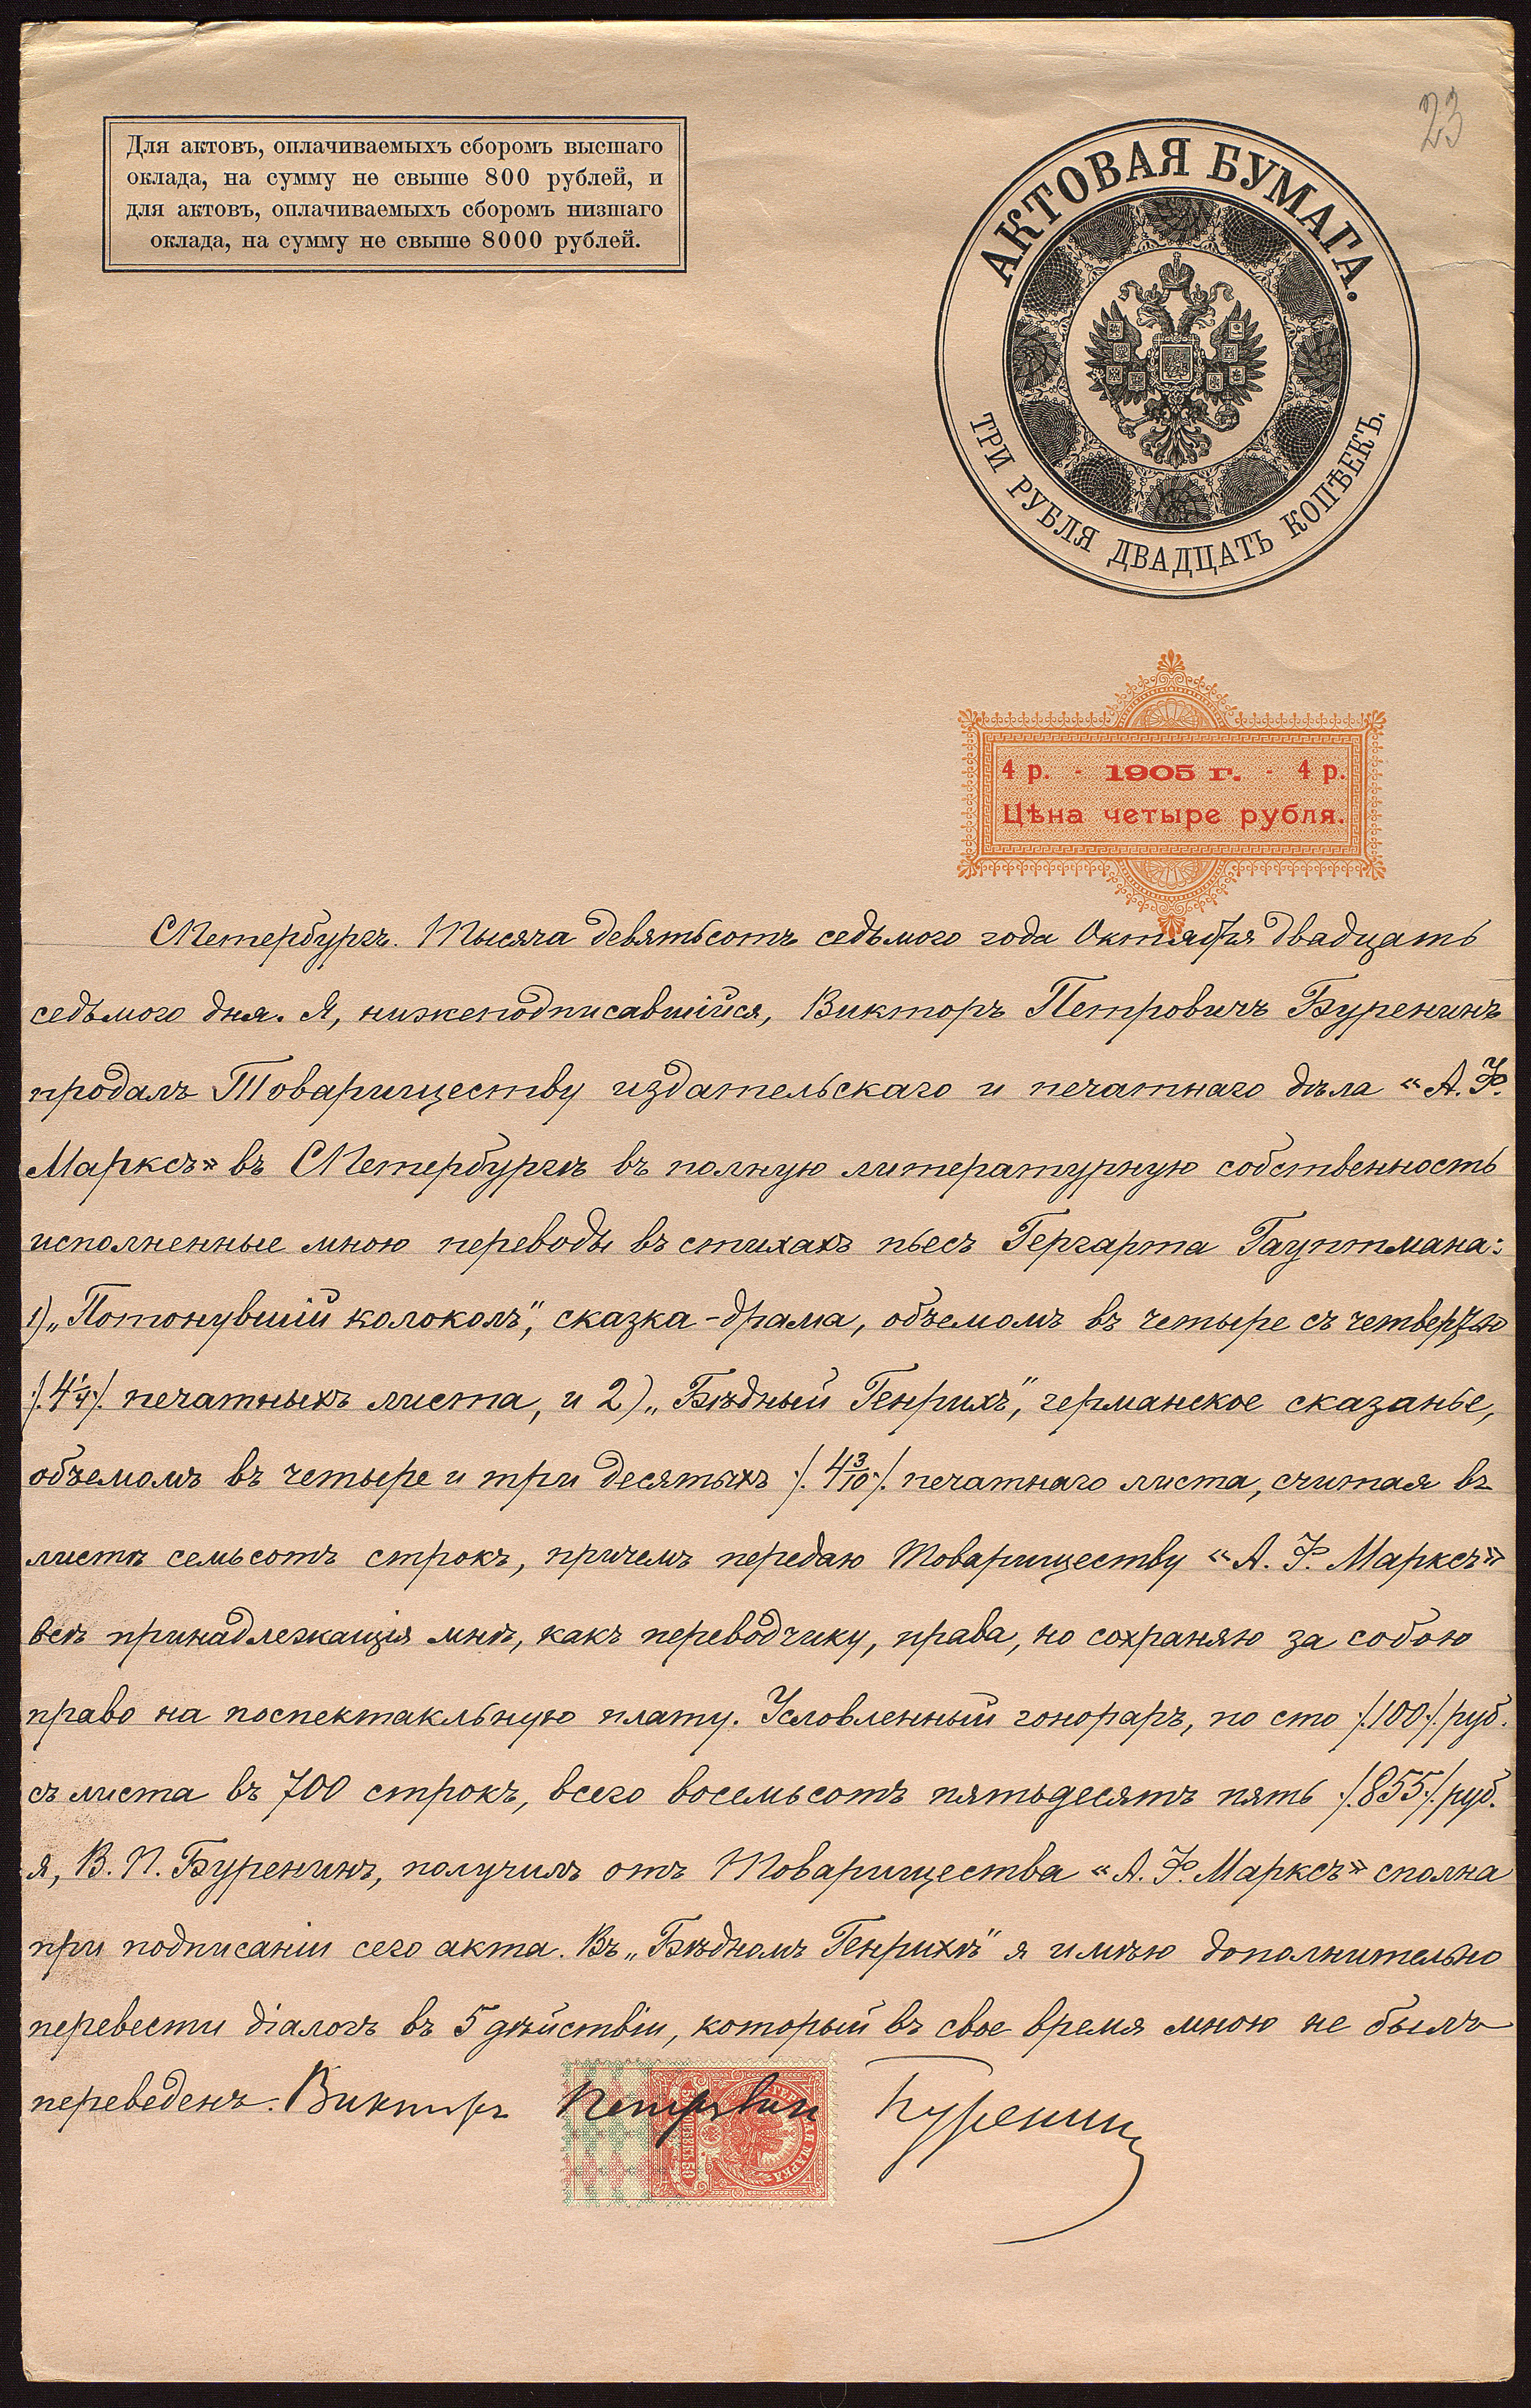 23
Для актовъ, оплачиваемыхъ сборомъ высшаго
оклада, на сумму не свыше 800 рублей, и
для актовъ, оплачиваемыхъ сборомъ низшаго
оклада, на сумму не свыше 8000 рублей.
АКТОВАЯ БУМАГА.
ТРИ РУБЛЯ ДВАДЦАТЬ КОПѢЕКЪ.
4 р. - 1905 г. - 4 р.
Цѣна четыре рубля.
СПетербургъ. Тысяча девятьсотъ седьмого года Октября двадцать
седьмого дня. Я, нижеподписавшійся, Викторъ Петровичъ Буренинъ
продалъ Товариществу издательскаго и печатнаго дѣла «А. Ф.
Марксъ» въ СПетербургѣ въ полную литературную собственность
исполненные мною переводы въ стихахъ пьесъ Гергарта Гауптмана:
1) „Потонувшій колоколъ", сказка-драма, объемомъ въ четыре съ четвертью
/4¼/. печатныхъ листа, и 2) „Бѣдный Генрихъ", германское сказанье,
объемомъ въ четыре и три десятыхъ /. 4 3/10 /. печатнаго листа, считая въ
листѣ семьсотъ строкъ, причемъ передаю Товариществу «А. Ф. Марксъ»
всѣ принадлежащія мнѣ, какъ переводчику, права, но сохраняю за собою
право на поспектакльную плату. Условленный гонораръ, по сто /.100/. руб.
съ листа въ 700 строкъ, всего восемьсотъ пятьдесятъ пять /.855/. руб.
я, В. П. Буренинъ, получилъ отъ Товарищества «А. Ф. Марксъ» сполна
при подписаніи сего акта. Въ „Бѣдномъ Генрихѣ" я имѣю дополнительно
перевести діалогъ въ 5 дѣйствіи, который въ свое время мною не былъ
переведенъ. Викторъ Петровичъ Буренинъ
ГЕРБОВАЯ МАРКА